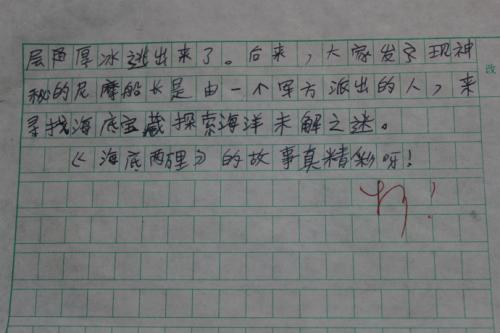 层面厚冰逃出来了。后来,大家发现神
秘的尼摩船长是由一个军方派出的人,来
寻找海底宝藏探索海洋未解之迷。
《海底两里》的故事真精彩呀!